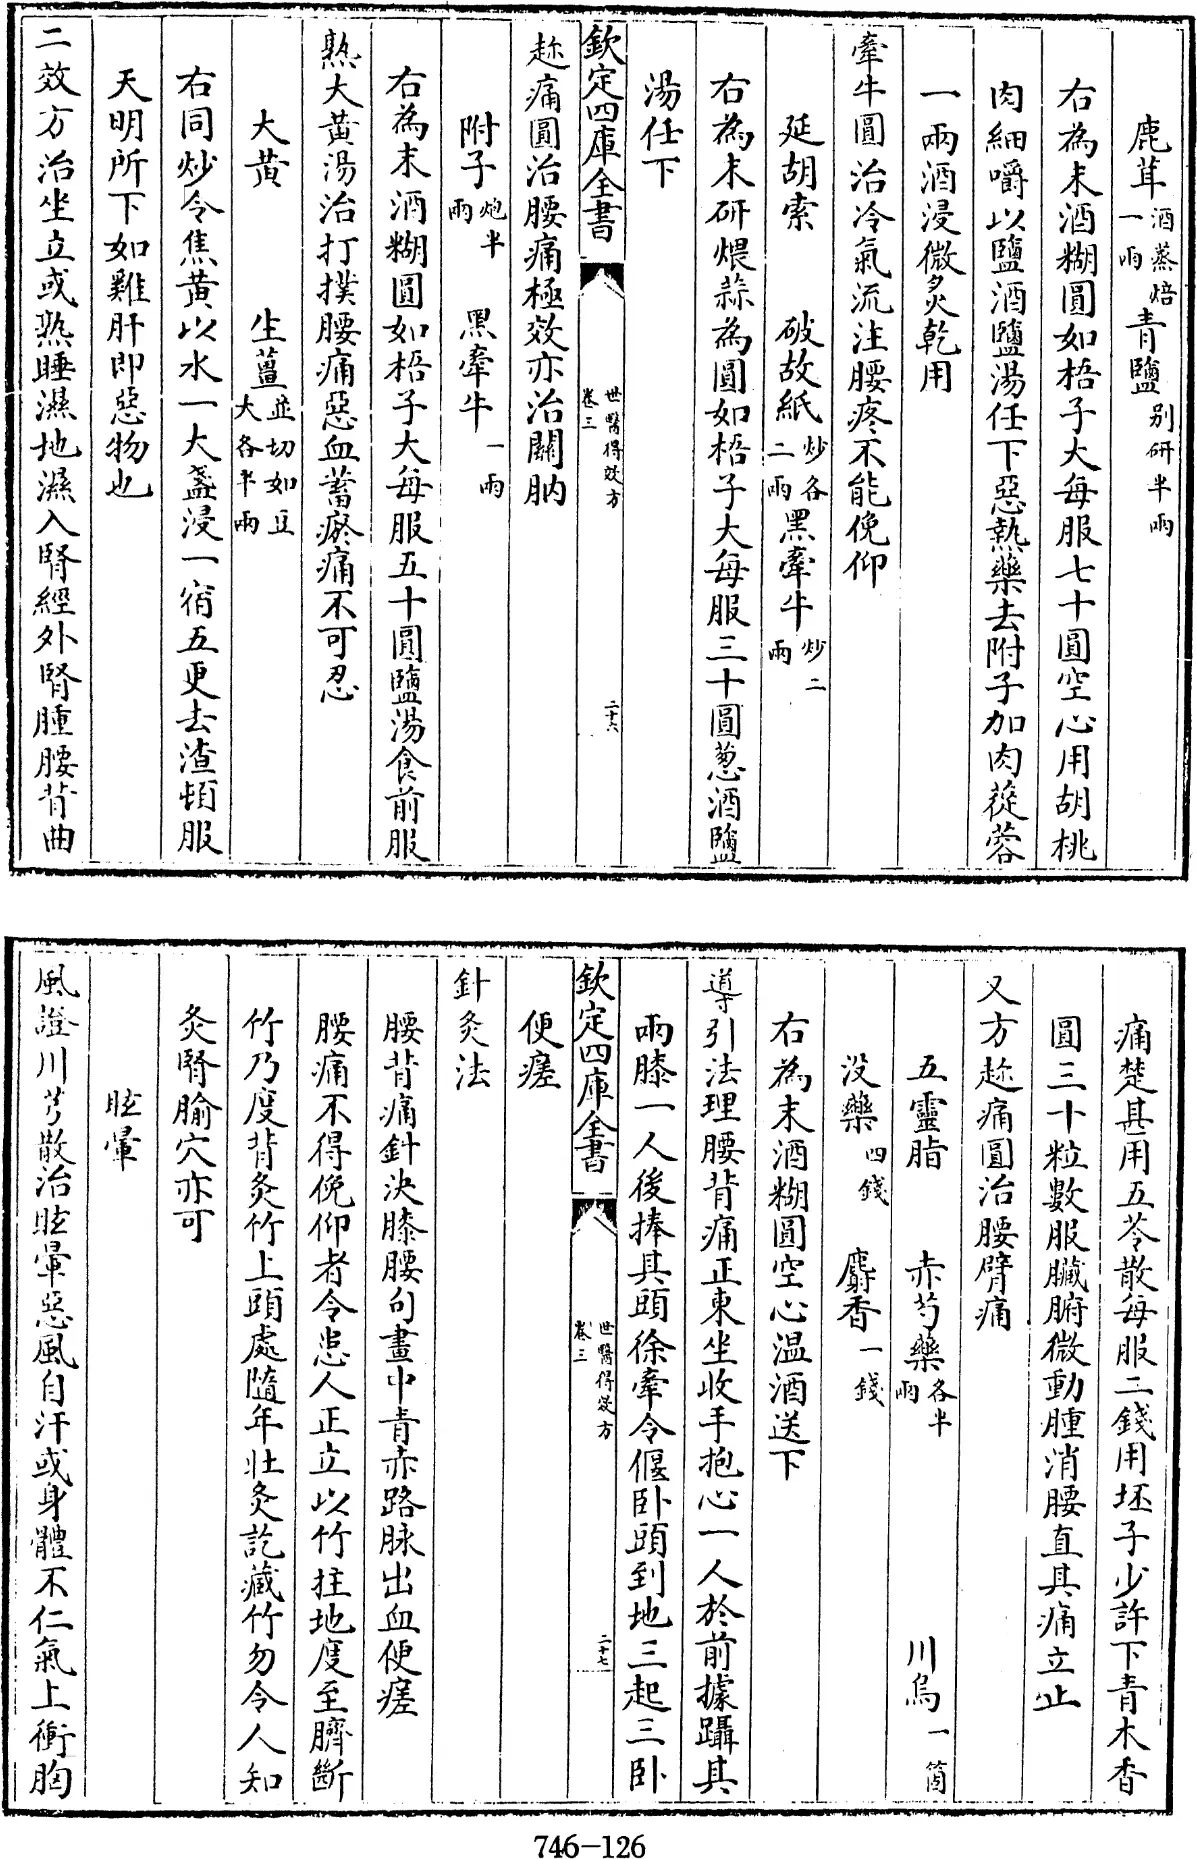 鹿茸酒蒸焙一兩青鹽别研半兩
右為末酒糊圓如梧子大每服七十圓空心用胡桃
肉細嚼以鹽酒鹽湯任下惡熱藥去附子加肉蓯蓉
一兩酒浸微炙乾用
牽牛圓治冷氣流注腰疼不能俛仰
延胡索 破故紙炒各二兩黑牽牛炒二兩
右為末研煨蒜為圓如梧子大每服三十圓葱酒鹽
湯任下
欽定四庫全書 世醫得效方 卷三 二十六
趂痛圓治腰痛極效亦治閪肭
附子炮半兩 黑牽牛一兩
右為末酒糊圓如梧子大每服五十圓鹽湯食前服
熟大黄湯治打撲腰痛惡血蓄瘀痛不可忍
大黄 生薑並切如豆大各半兩
右同炒令焦黄以水一大盞浸一宿五更去渣頓服
天明所下如雞肝即惡物也
二效方治坐立或熟睡濕地濕入腎經外腎腫腰背曲
痛楚甚用五苓散每服二錢用坯子少許下青木香
圓三十粒數服臟腑微動腫消腰直其痛立止
又方趂痛圓治腰臂痛
五靈脂 赤芍藥各半兩 川烏一箇
没藥四錢 麝香一錢
右為末酒糊圓空心温酒送下
導引法理腰背痛正東坐收手抱心一人於前據躡其
兩膝一人後捧其頭徐牽令偃卧頭到地三起三卧
欽定四庫全書 世醫得效方 卷三 二十七
便瘥
針灸法
腰背痛針決膝腰句畫中青赤路脉出血便瘥
腰痛不得俛仰者令患人正立以竹拄地度至臍斷
竹乃度背灸竹上頭處隨年壯灸訖藏竹勿令人知
灸腎腧穴亦可
眩暈
風證川芎散治眩暈惡風自汗或身體不仁氣上衝胸
746-126